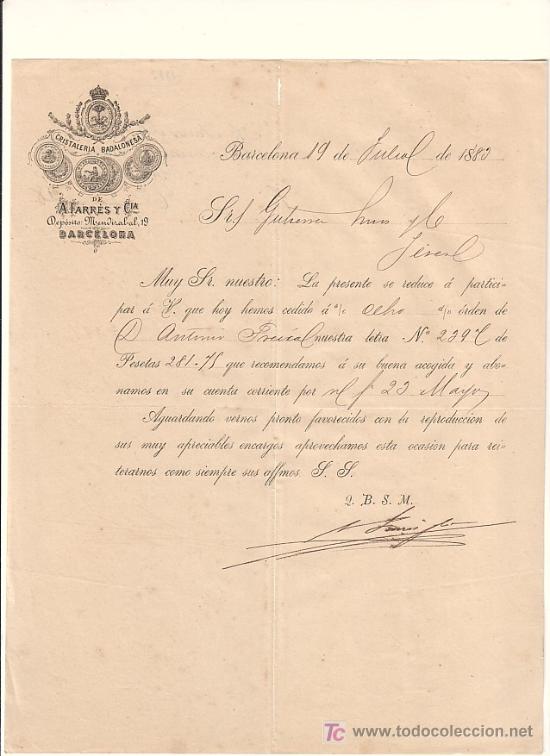 CRISTALERIA BADALONESA
DE
A. FARRÉS Y Cía
Depósito: Mendizabal, 19
BARCELONA
Barcelona 19 de Julio de 1883
Srs Gutierrez Hnos y C
Jerez
Muy Sr. nuestro: La presente se reduce á partici-
par á V. que hoy hemos cedido á d/v ocho d/v órden de
D Antonio nuestra letra No. 2397 de
Pesetas 281-75 que recomendamos á su buena acogida y abo-
namos en su cuenta corriente por 23 Mayo
Aguardando vernos pronto favorecidos con la reproduccion de
sus muy apreciables encargos aprovechamos esta ocasión para rei-
terarnos como siempre sus affmos. S. S.
Q. B. S. M.
TC www.todocoleccion.net